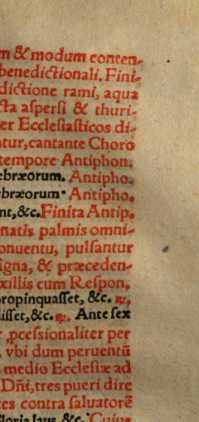 m & modum conten-
benedictionali. Fini-
dictione rami, aqua
cta aspersi & thuri-
er Ecclesiasticos di-
ntur, cantante Choro
tempore Antiphon.
ebræorum. Antipho.
ebræorum. Antipho.
nt, &c. Finita Antip.
natis palmis omni-
onuentu, pulsantur
igna, & præceden-
xillis cum Respon,
ropinquasset, &c. ℟.
disset, &c. ℟. Ante sex
r pcessionaliter per
, vbi dum peruentū
medio Ecclesiæ ad
Dñi, tres pueri dire
tes contra saluatorē
Gloria laus &c. Cuius